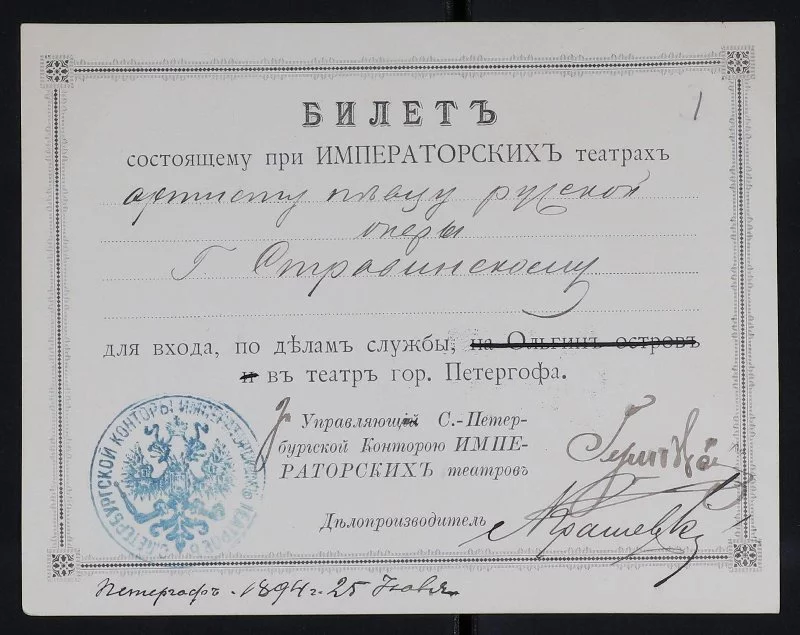 1
БИЛЕТЪ
состоящему при ИМПЕРАТОРСКИХЪ театрахъ
артисту русской
оперы
Г. Стравинскому
для входа, по дѣламъ службы, на Ольгинъ островъ
и въ театръ гор. Петергофа.
Управляющій С.-Петер-
бургской Конторою ИМПЕ-
РАТОРСКИХЪ театровъ
Дѣлопроизводитель
ПЕТЕРБУРГСКОЙ КОНТОРЫ ИМПЕРАТОРСКИХЪ ТЕАТРОВЪ
Петергофъ. 1894 г. 25 Іюля